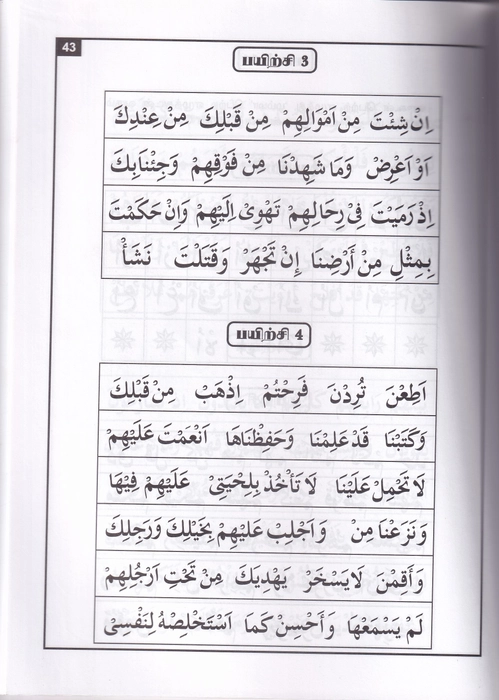 43
பயிற்சி 3
اِنْ شِئْتَ مِنْ اَمْوَالِهِمْ مِنْ قَبْلِكَ مِنْ عِنْدِكَ
اَوْ اَعْرِضْ وَمَا شَهِدْنَا مِنْ فَوْقِهِمْ وَجِئْنَابِكَ
اِذْ رَمَيْتَ فِيْ رِحَالِهِمْ تَهْوِيْ اِلَيْهِمْ وَاِنْ حَكَمْتَ
بِمِثْلِ مِنْ أَرْضِنَا اِنْ تَجْهَرْ وَقَتَلْتَ نَشَأْ
பயிற்சி 4
اَطِعْنَ تُرِدْنَ فَرِحْتُمْ اِذْهَبْ مِنْ قَبْلِكَ
وَكَتَبْنَا قَدْ عَلِمْنَا وَحَفِظْنَاهَا اَنْعَمْتَ عَلَيْهِمْ
لَا تَحْمِلْ عَلَيْنَا لَا تَأْخُذْ بِلِحْيَتِيْ عَلَيْهِمْ فِيْهَا
وَنَزَعْنَا مِنْ وَاَجْلِبْ عَلَيْهِمْ بِخَيْلِكَ وَرَجِلِكَ
وَأَقِمْنَ لَايَسْخَرْ يَهْدِيَكَ مِنْ تَحْتِ اَرْجُلِهِمْ
لَمْ يَسْمَعْهَا وَأَحْسِنْ كَمَا اَسْتَخْلِصْهُ لِنَفْسِيْ